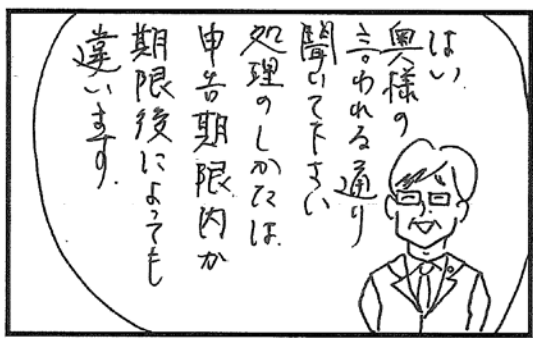 はい、
奥様の
言われる通り
聞いて下さい
処理のしかたは、
申告期限内か
期限後によっても
違います。